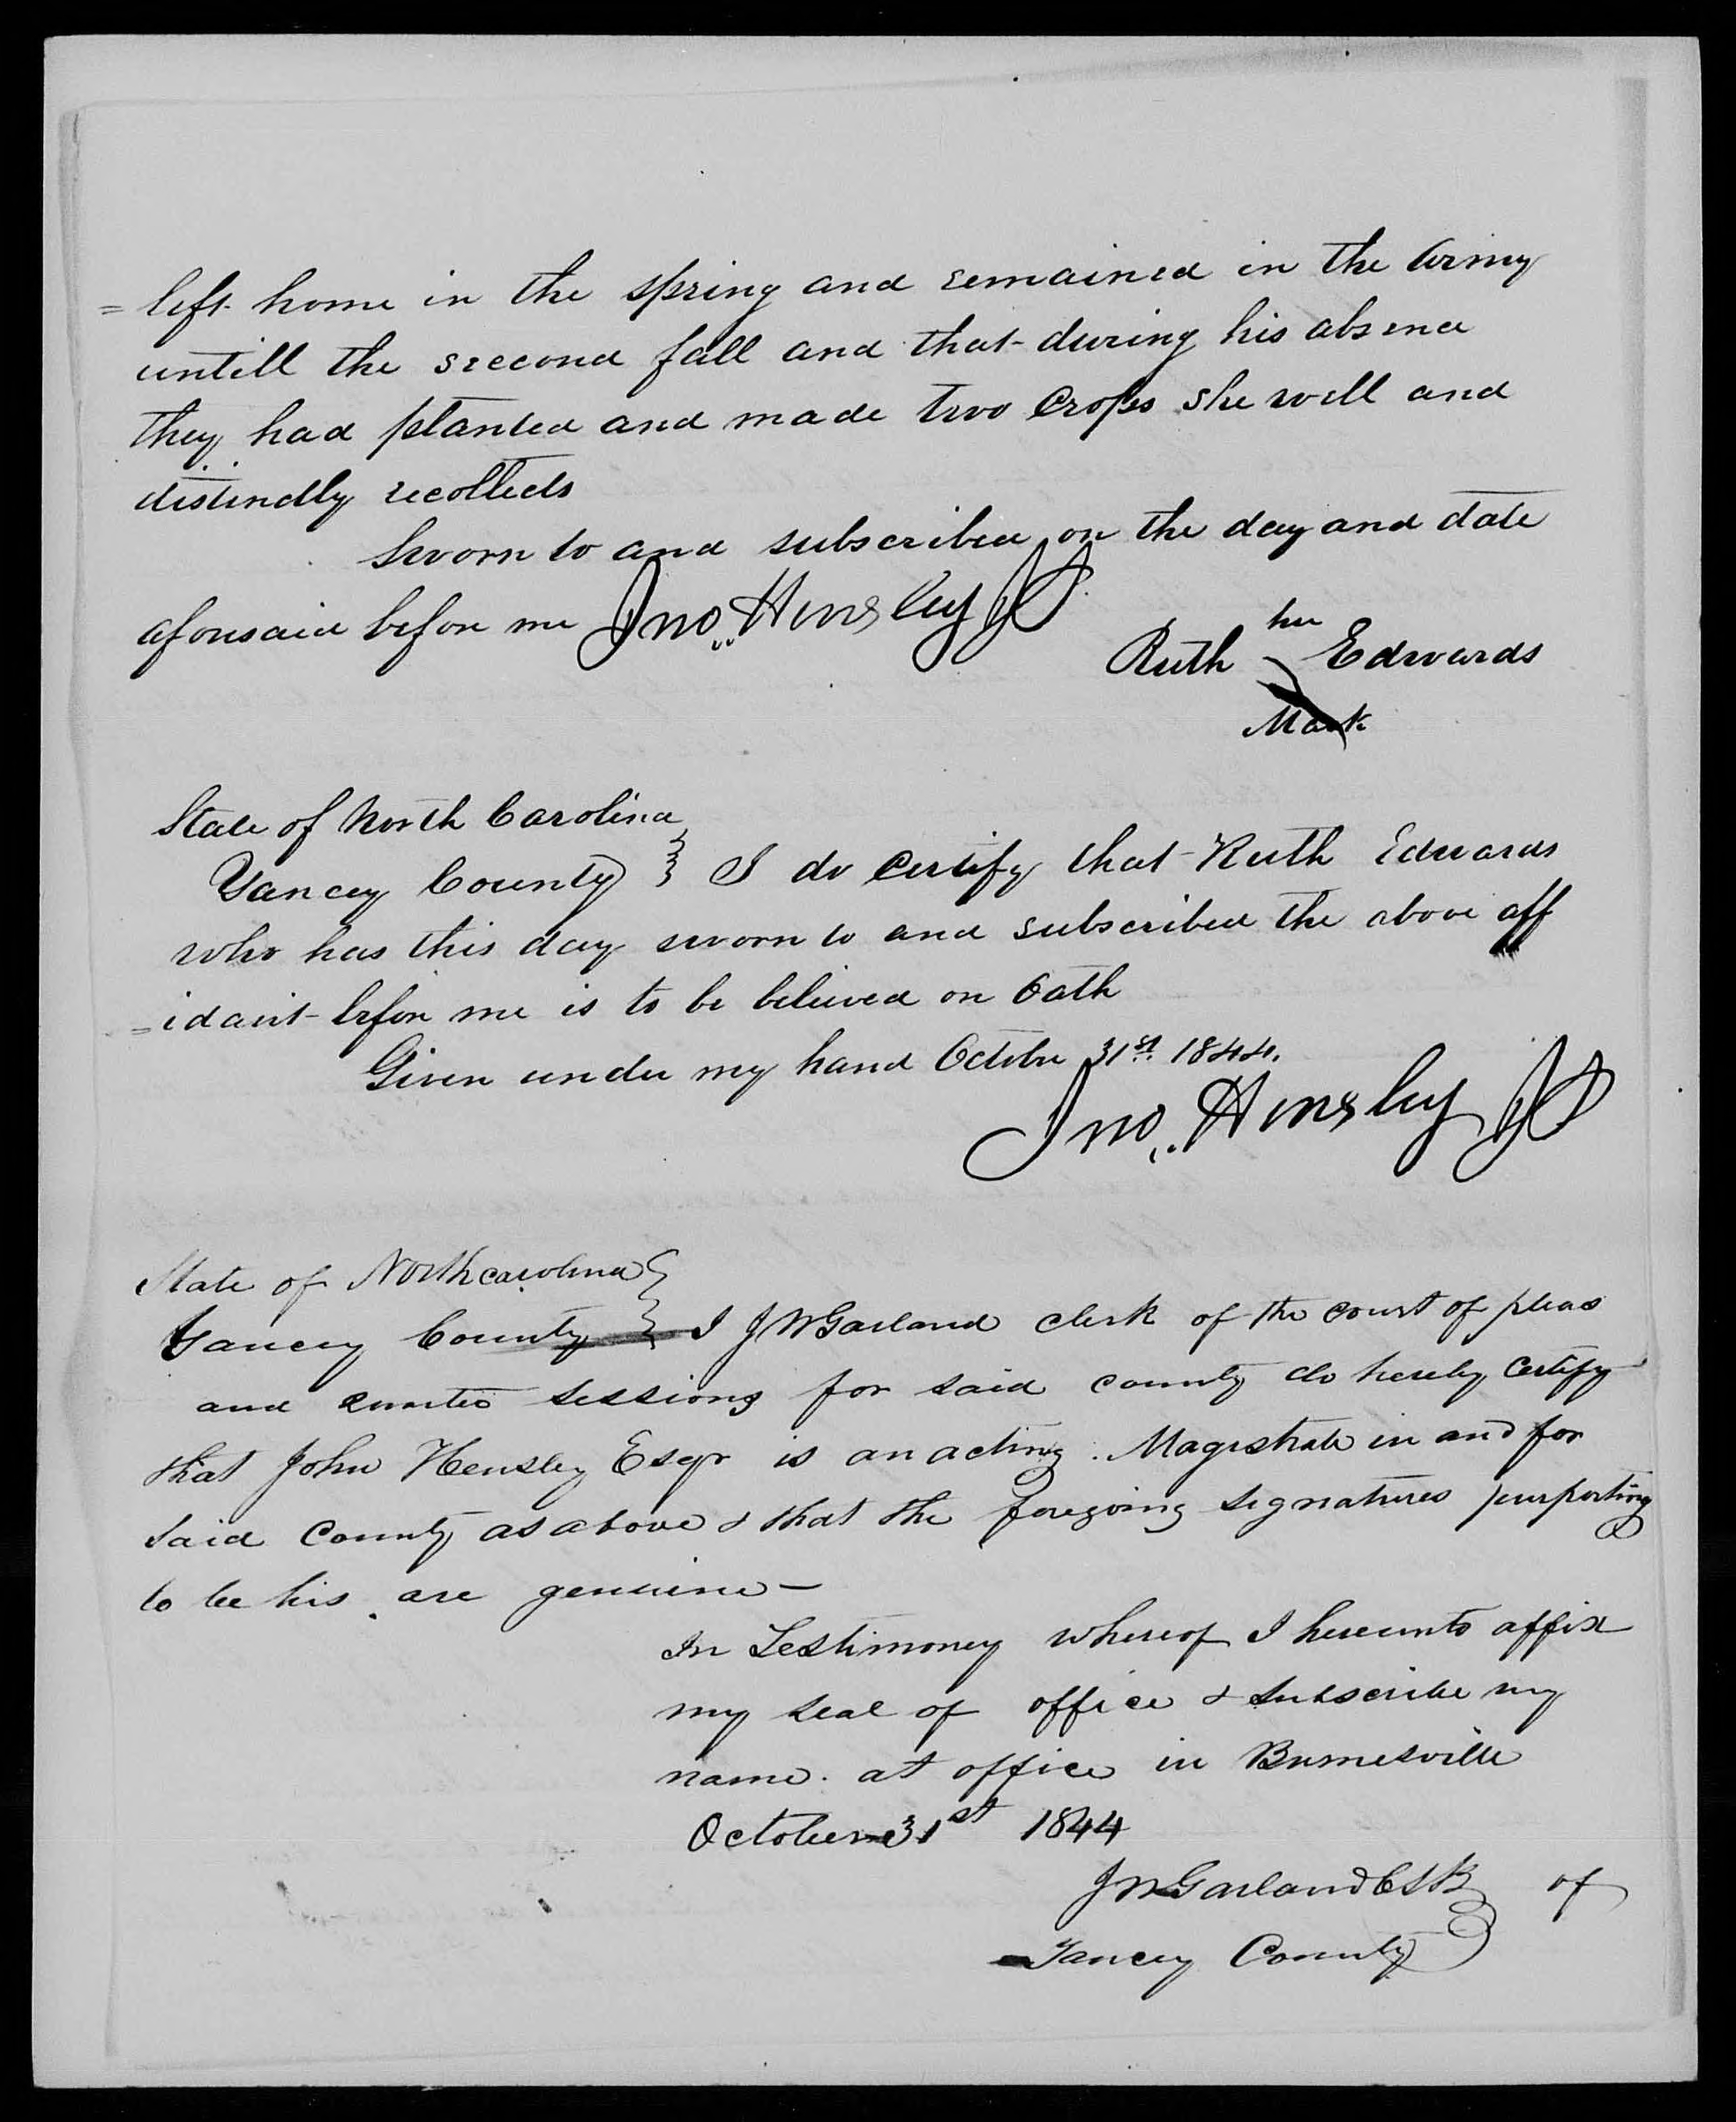 = left home in the spring and remained in the army
untill the second fall and that during his absence
they had planted and made two Crops she well and
distinctly recollects
Sworn to and subscribed on the day and date
aforesaid before me Jno. Hensley JP
her
Ruth Edwards
Mark
State of North Carolina
Yancey County } I do Certify that Ruth Edwards
who has this day sworn to and subscribed the above aff
=idavit before me is to be believed on Oath
Given under my hand October 31st 1844.
Jno. Hensley JP
State of North carolina
Yancey County } I J W Garland clerk of the court of pleas
and quarter sessions for said county do hereby Certify
that John Hensley Esqr is an acting Magistrate in and for
Said County as above & that the foregoing signatures purporting
to be his are genuine —
In Testimoney whereof I hereunto affix
my seal of office & subscribe my
name at office in Burnesville
October 31st 1844
J W Garland Clk of
Yancey County